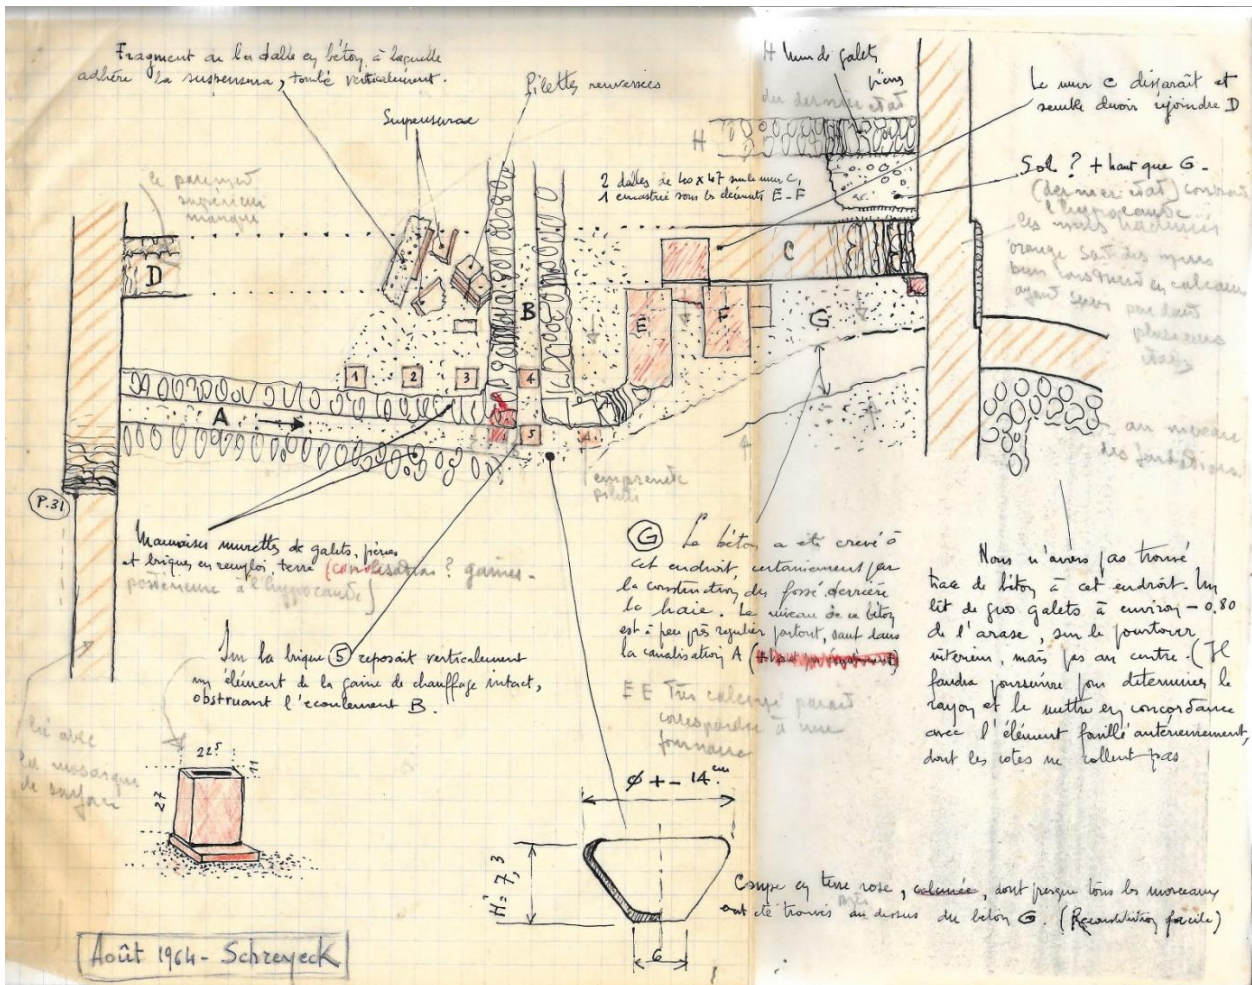 Fragment de la dalle en béton, à laquelle
adhère la suspensura, tombé verticalement.
Suspensurae
Pilettes renversées
H Mur de galets
pierres
du dernier état
H
Le mur C disparaît et
semble devoir rejoindre D
2 dalles de 40 x 47 sur le mur C,
1 encastrée sous les éléments E-F
Sol ? + haut que G-
(dernier état) 
l'hypocauste
le parement
supérieur
manque
Ces murs hachurés
orange sont des murs
bien construits en calcaire
ayant servi pendant
plusieurs
états
D
C
B
E
F
G
1
2
3
4
5
A
au niveau
des fondations.
P.31
empreinte
pilette
Mauvaises murettes de galets, pierres
et briques en remploi, terre (canalisation ? gaines-
postérieure à l'hypocauste)
Sur la brique 5 reposait verticalement
un élément de la gaine de chauffage intact,
obstruant l'écoulement B.
G Le béton a été crevé à
cet endroit, certainement par
la construction du fossé derrière
la haie. Le niveau de ce béton
est à peu près régulier partout, sauf dans
la canalisation A
E E Très calciné paraît
correspondre à une
fournaise
Nous n'avons pas trouvé
trace de béton à cet endroit. Un
lit de gros galets à environ - 0,80
de l'arase, sur le pourtour
intérieur, mais pas au centre. (Il
faudra poursuivre pour déterminer le
rayon et le mettre en concordance
avec l'élément fouillé antérieurement,
dont les cotes ne collent pas
lié avec
la mosaïque
de surface
22⁵
11
27
Ø + - 14 cm
H = 7,3
6
Coupe en terre rose, dont presque tous les morceaux
ont été trouvés au dessus du béton G. (Reconstitution facile)
Août 1964 - Schreyeck